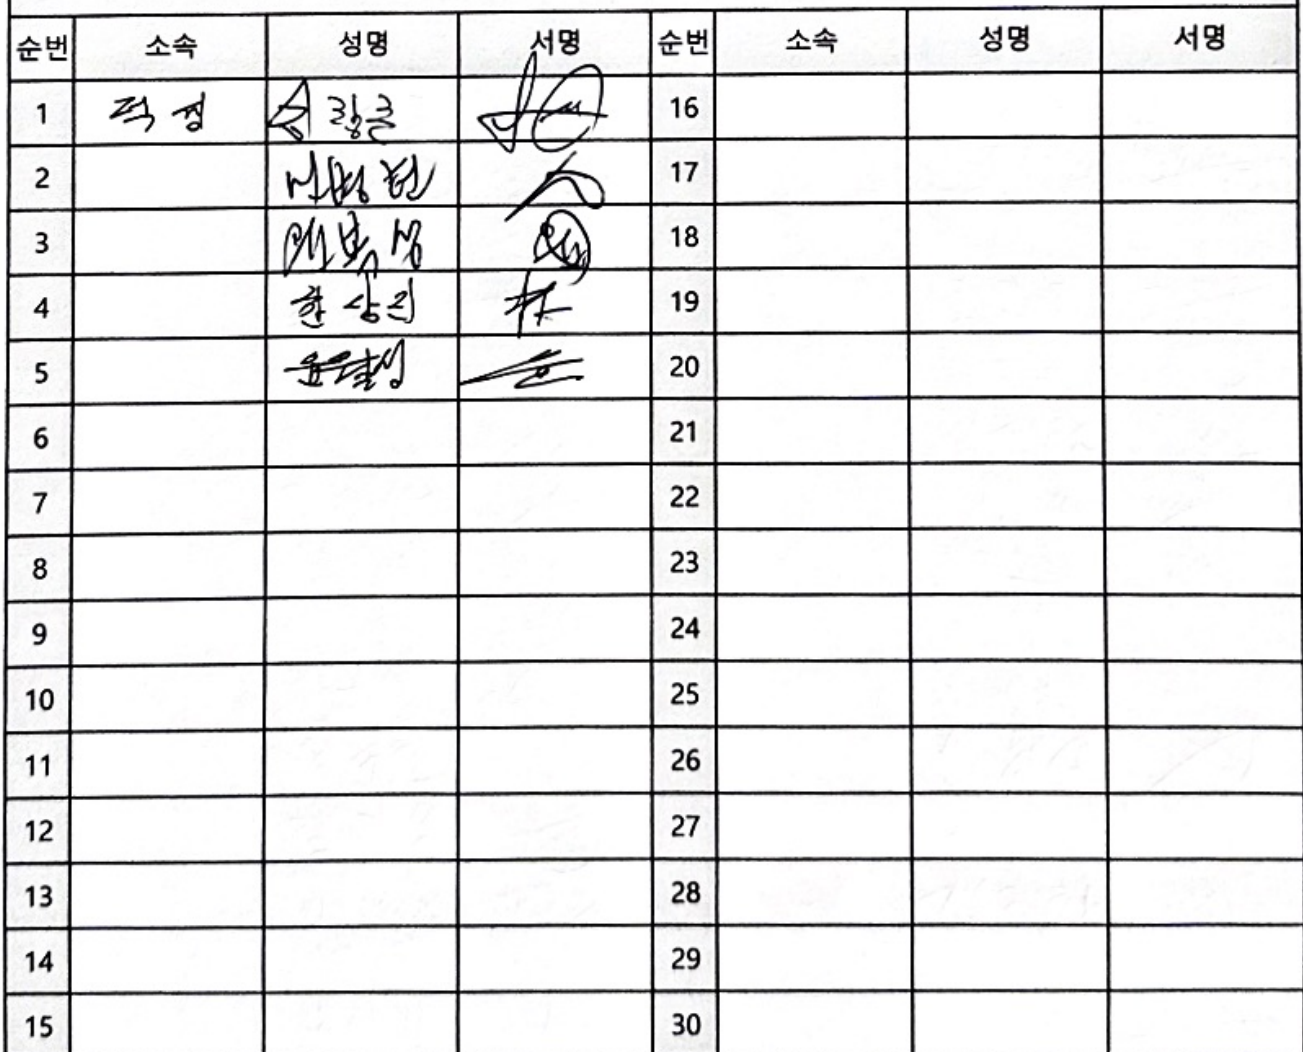 순번 소속 성명 서명 순번 소속 성명 서명
1 16
2 17
3 18
4 한상희 19
5 윤달성 20
6 21
7 22
8 23
9 24
10 25
11 26
12 27
13 28
14 29
15 30